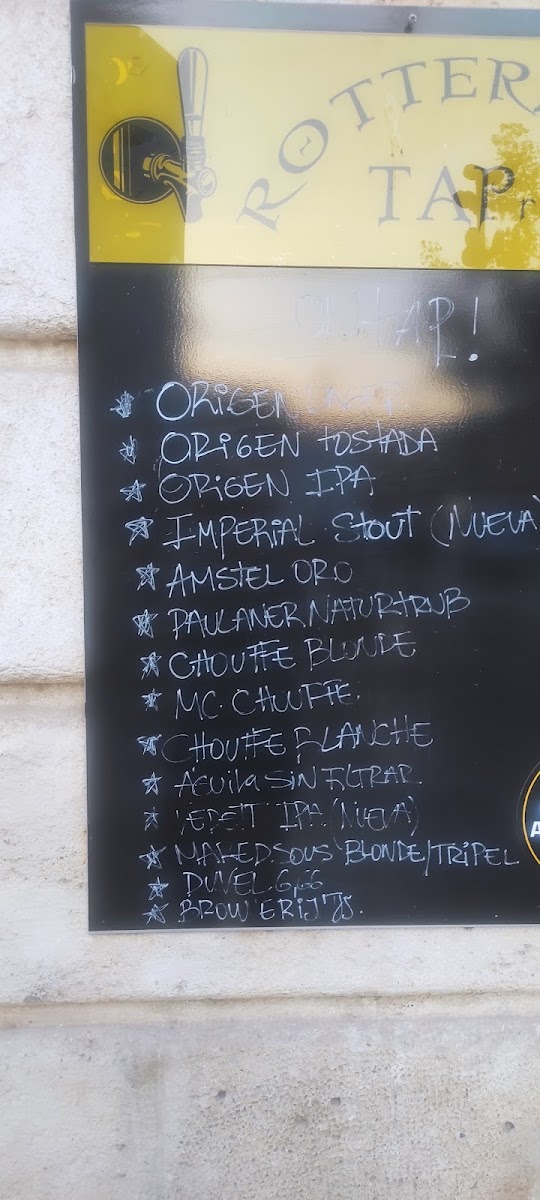 ROTTER
TAP
ORIGEN
ORIGEN TOSTADA
ORIGEN IPA
IMPERIAL STOUT (NUEVA)
AMSTEL ORO
PAULANER NATURTRUB
CHOUFFE BLONDE
MC. CHOUFFE.
CHOUFFE BLANCHE
AGUILA SIN FILTRAR
IPA (NUEVA)
BLONDE/TRIPEL
DUVEL 6,66
BROUWERIJ 'IJS.